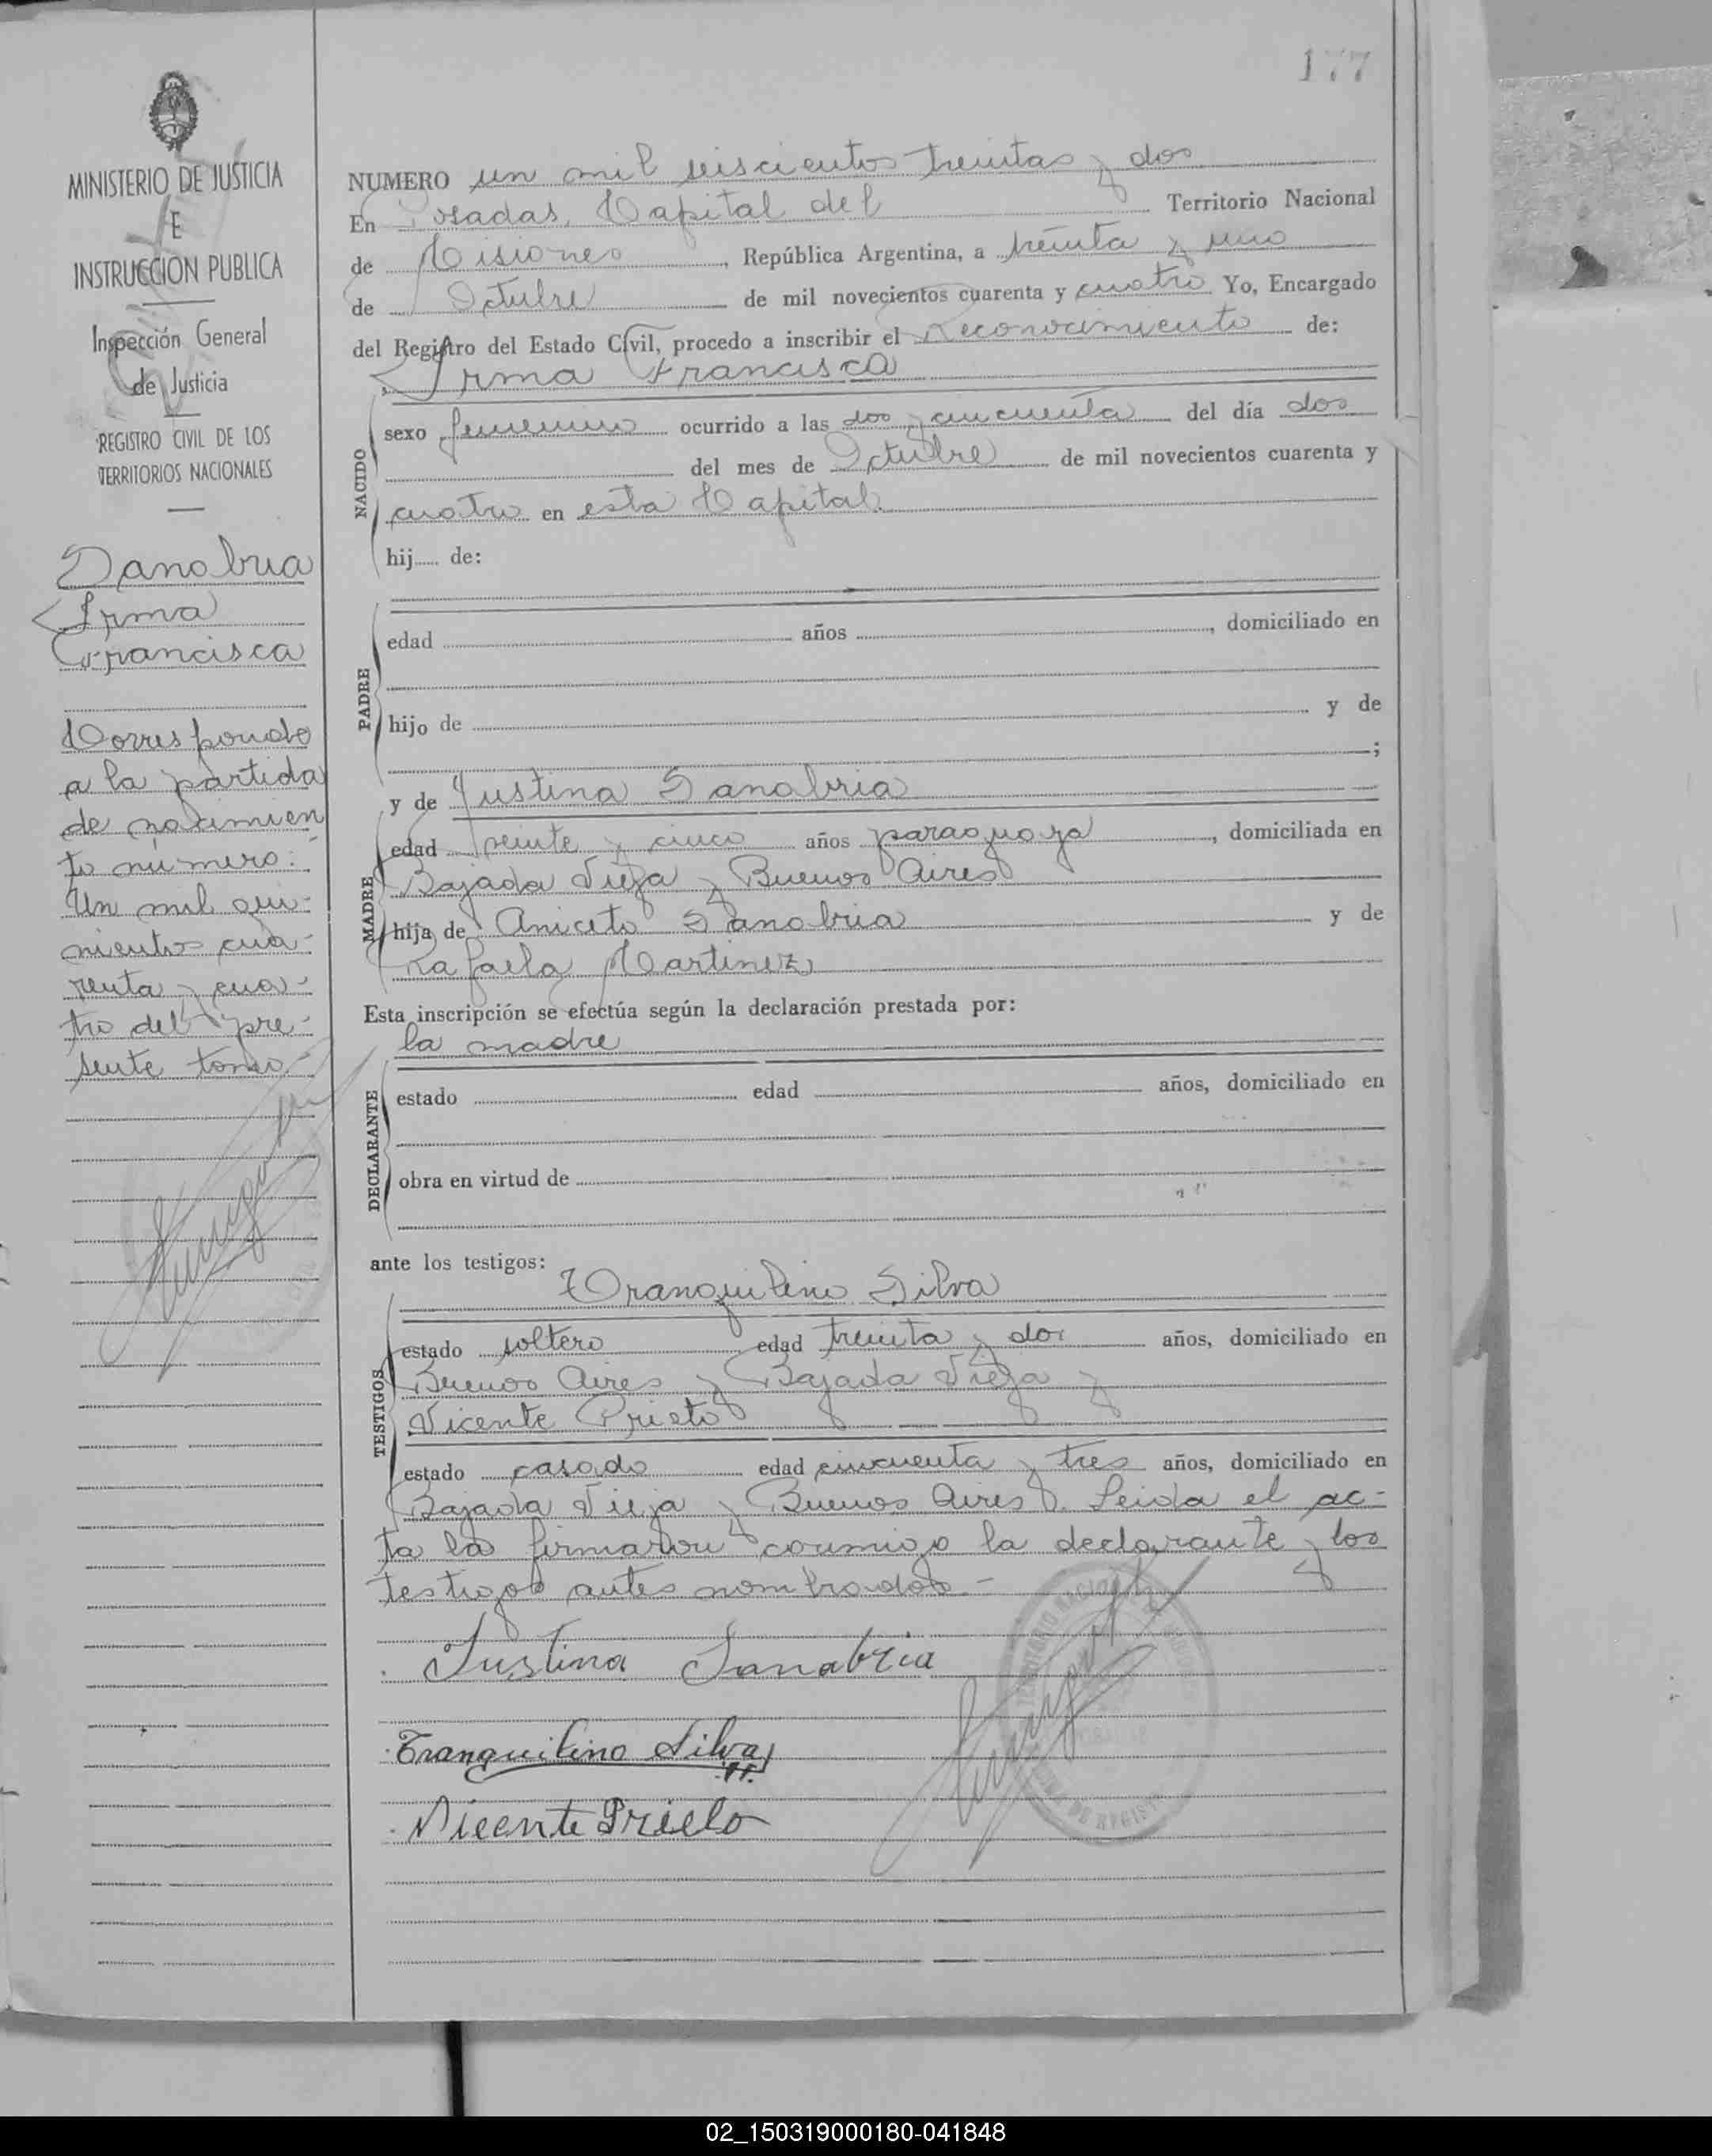 177
MINISTERIO DE JUSTICIA
E
INSTRUCCION PUBLICA
Inspección General
de Justicia
REGISTRO CIVIL DE LOS
TERRITORIOS NACIONALES
Sanabria
Irma
Francisca
Corresponde
a la partida
de nacimien
to número:
Un mil qui-
nientos cua-
renta y cua-
tro del pre-
sente tomo.-
NUMERO un mil seiscientos treintas y dos
En Posadas, Capital del Territorio Nacional
de Misiones, República Argentina, a treinta y uno
de Octubre de mil novecientos cuarenta y cuatro Yo, Encargado
del Registro del Estado Civil, procedo a inscribir el Reconocimiento de:
Irma Francisca
NACIDO
sexo femenino ocurrido a las dos y cincuenta del día dos
del mes de Octubre de mil novecientos cuarenta y
cuatro en esta Capital.
hij..... de:
PADRE
edad años , domiciliado en
hijo de y de
;
MADRE
y de Justina Sanabria
edad veinte y cinco años paraguaya, domiciliada en
Bajada Vieja y Buenos Aires
hija de Aniceto Sanabria y de
Rafaela Martinez
Esta inscripción se efectúa según la declaración prestada por:
la madre
DECLARANTE
estado edad años, domiciliado en
obra en virtud de
ante los testigos:
TESTIGOS
Tranquilino Silva
estado soltero edad treinta y dos años, domiciliado en
Buenos Aires y Bajada Vieja y
Vicente Prieto
estado casado edad cincuenta y tres años, domiciliado en
Bajada Vieja y Buenos Aires. Leida el ac-
ta la firmaron conmigo la declarante y los
testigos antes nombrados.-
Justina Sanabria
Tranquilino Silva
Vicente Prieto
02_150319000180-041848